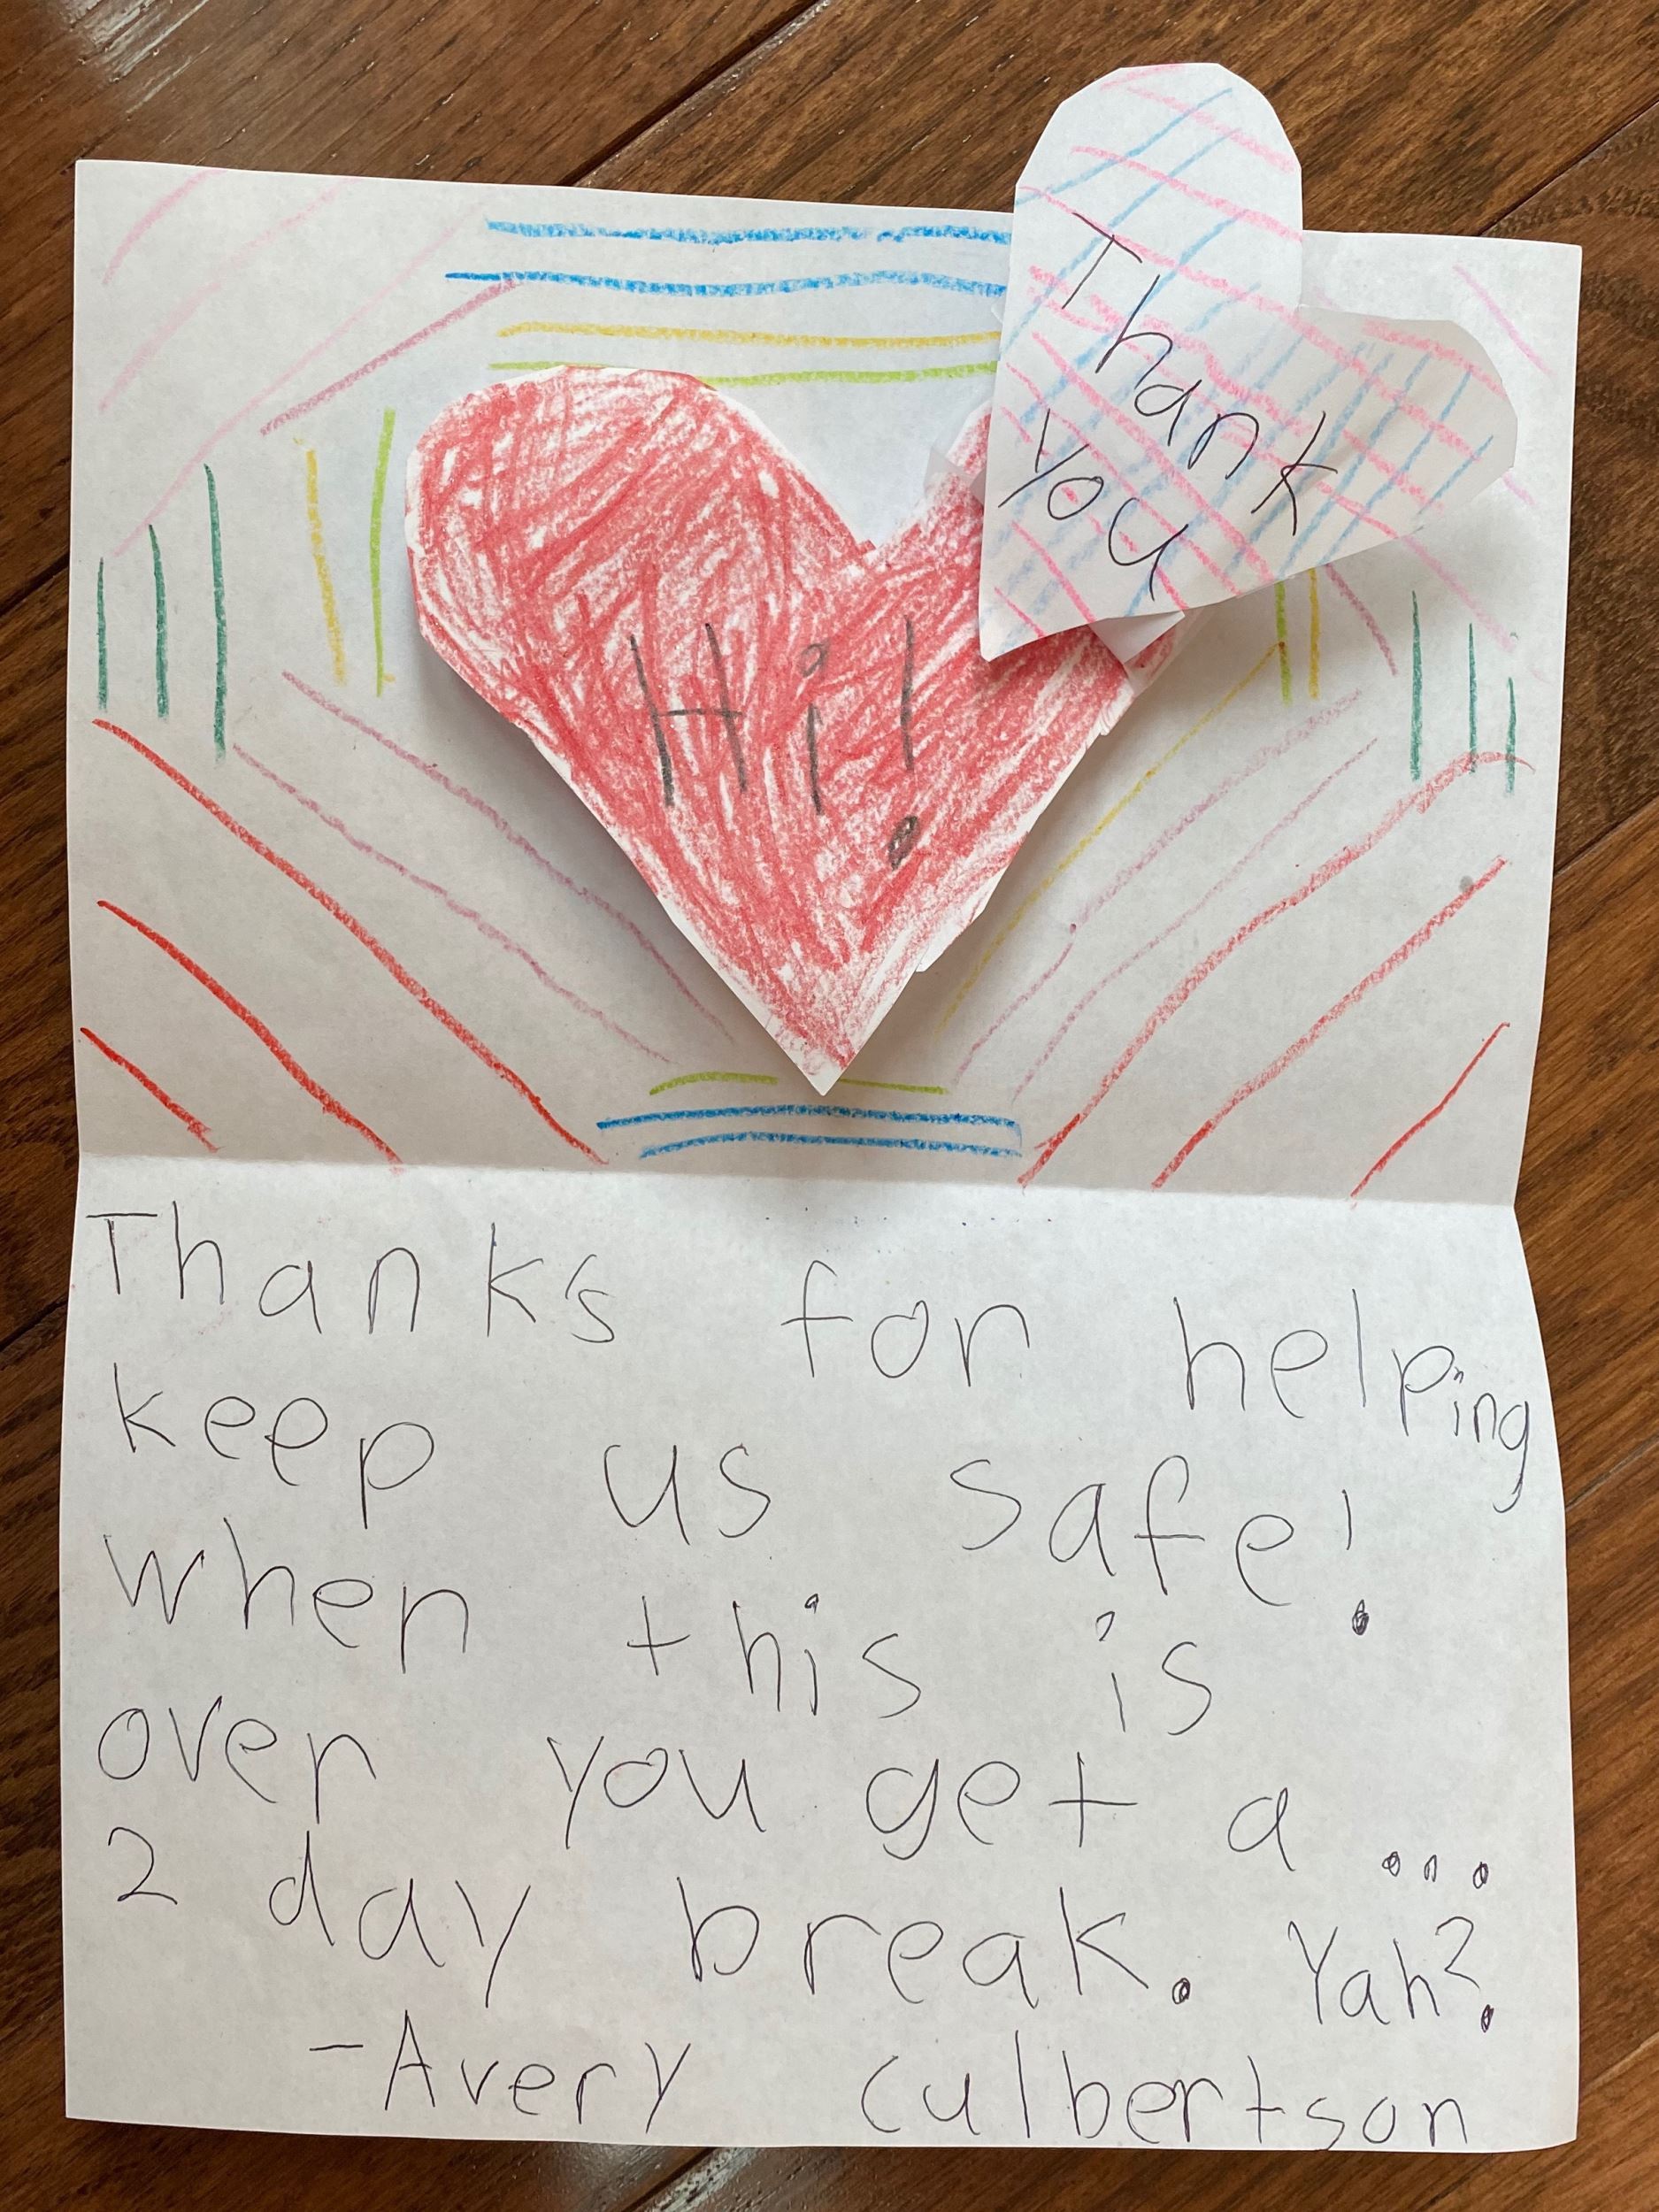 Thank
you
Hi!
Thank's for helping
keep us safe!
when this is
over you get a ...
2 day break. Yah?
-Avery Culbertson